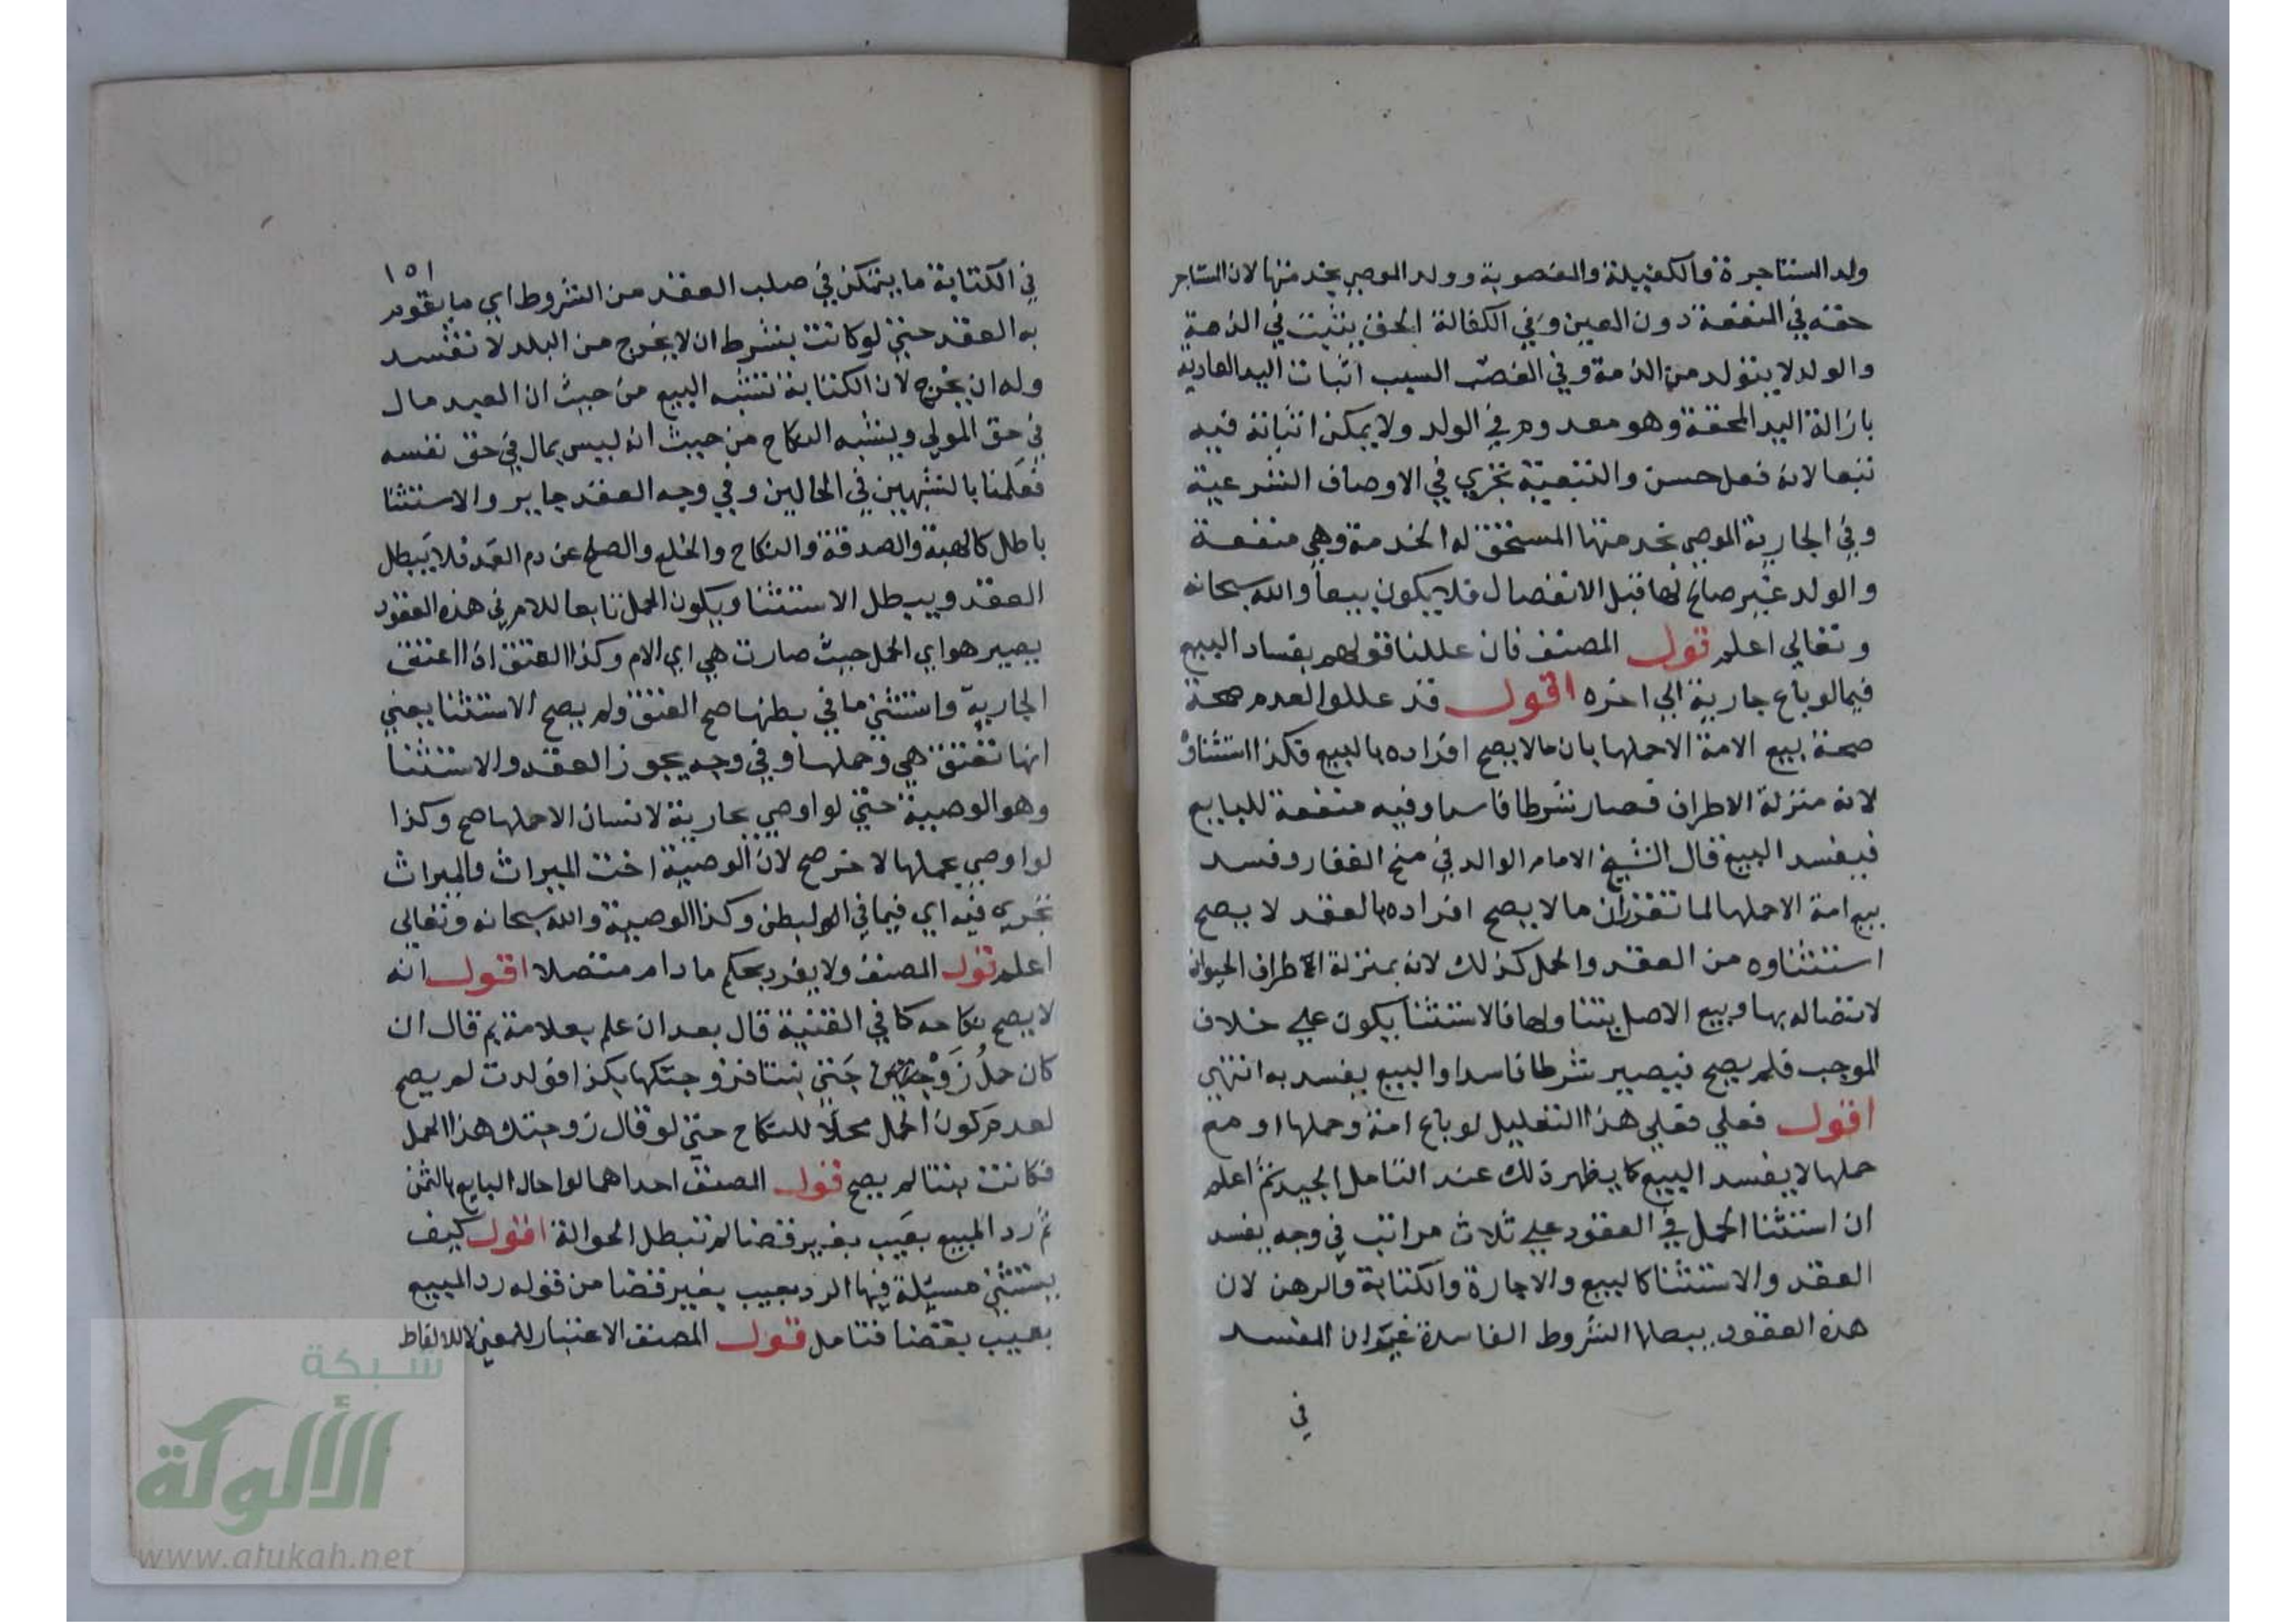 ولد المستاجرة والكفيلة والمغصوبة وولد الموصي بخدمتها لان المستاجر
حقه في المنفعة دون العين وفي الكفالة الحق يثبت في الذمة
والولد لا يتولد من الذمة وفي الغصب السبب اثبات اليد العادية
بازالة اليد المحقة وهو معدوم في الولد ولا يمكن اثباته فيه
تبعا لانه فعل حسن والتبعية تجزي في الاوصاف الشرعية
وفي الجارية الموصي بخدمتها المستحق له الخدمة وهي منفعة
والولد غير صالح لها قبل الانفصال فلا يكون بيعا والله سبحانه
وتعالي اعلم قول المصنف فان عللنا قولهم بفساد البيع
فيما لو باع جارية الي اخره اقول قد عللوا لعدم صحة
صحة بيع الامة الاحملها بان مالا يصح افراده بالبيع فكذا استثناوه
لانه منزلة الاطراف فصار شرطا فاسدا وفيه منفعة للبايع
فيفسد البيع قال الشيخ الامام الوالد في منح الغفار وفسد
بيع امة الاحملها لما تقرر ان مالا يصح افراده بالعقد لا يصح
استثناوه من العقد والحمل كذلك لانه بمنزلة الاطراف الحيوان
لاتصاله بها وبيع الاصل يتناولها فالاستثنا يكون علي خلاف
الموجب فلم يصح فيصير شرطا فاسدا والبيع يفسد به انتهي
اقول فعلي فعلي هذا التعليل لو باع امة وحملها او مع
حملها لا يفسد البيع كما يظهر ذلك عند التامل الجيد ثم اعلم
ان استثنا الحمل في العقود علي ثلاث مراتب في وجه يفسد
العقد والاستثنا كالبيع والاجارة والكتابة والرهن لان
هذه العقود يبطلها الشروط الفاسدة غير ان المفسد
في
١٥١
في الكتابة ما يتمكن في صلب العقد من الشروط اي ما يقوم
به العقد حتي لو كانت بشرط ان لا يخرج من البلد لا تفسد
وله ان يخرج لان الكتابة تشبه البيع من حيث ان العبد مال
في حق المولي ويشبه النكاح من حيث انه ليس بمال في حق نفسه
فعلمنا بالشبهين في الحالين وفي وجه العقد جايز والاستثنا
باطل كالهبة والصدقة والنكاح والخلع والصلح عن دم العمد فلا يبطل
العقد ويبطل الاستثنا ويكون الحمل تابعا للام في هذه العقود
يصير هو اي الحمل حيث صارت هي اي الام وكذا العتق اذا اعتق
الجارية واستثني ما في بطنها صح العتق ولم يصح الاستثنا يعني
انها تعتق هي وحملها وفي وجه يجوز العقد والاستثنا
وهو الوصية حتي لو اوصي بجارية لانسان الاحملها صح وكذا
لو اوصي بحملها لاخر صح لان الوصية اخت الميراث والميراث
تجري فيه اي فيما في البطن وكذا الوصية والله سبحانه وتعالي
اعلم قول المصنف ولا يفرد بحكم ما دام متصلا اقول انه
لا يصح نكاحه كما في القنية قال بعد ان علم بعلامة بم قال ان
كان حمل زوجتي بنتا فزوجتكها بكذا فولدت لم يصح
لعدم كون الحمل محلا للنكاح حتي لو قال زوجتك هذا الحمل
فكانت بنتا لم يصح قول المصنف احداهما لو احال البايع بالثمن
ثم رد المبيع بعيب بغير قضا لم تبطل الحوالة اقول كيف
يستثني مسيلة فيها الرد بعيب بغير قضا من قوله رد المبيع
بعيب بقضا فتامل قول المصنف الاعتبار للمعني لا للالفاظ
شبكة
الألوكة
www.alukah.net